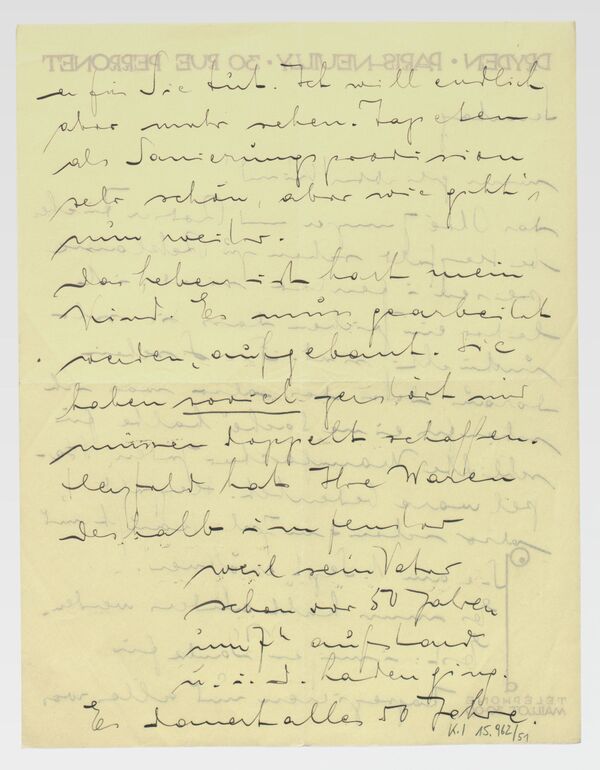 DRYDEN · PARIS-NEUILLY · 30 RUE PERRONET
er für Sie tut. Ich will endlich
aber mehr sehen. Tapeten
als Sanierungsprovision
sehr schön, aber wie geht's
nun weiter.
Das Leben ist hart mein
Kind. Es muss gearbeitet
werden, aufgebaut. Sie
haben soviel zerstört und
müssen doppelt schaffen.
hat Ihre Waren
deshalb im Fenster
weil sein Vater
schon vor 50 Jahren
um 7h aufstand
u. i. d. Laden ging.
Es dauert alles 50 Jahre.
TÉLÉPHONE
MAILLOT
K.I 15.962/51